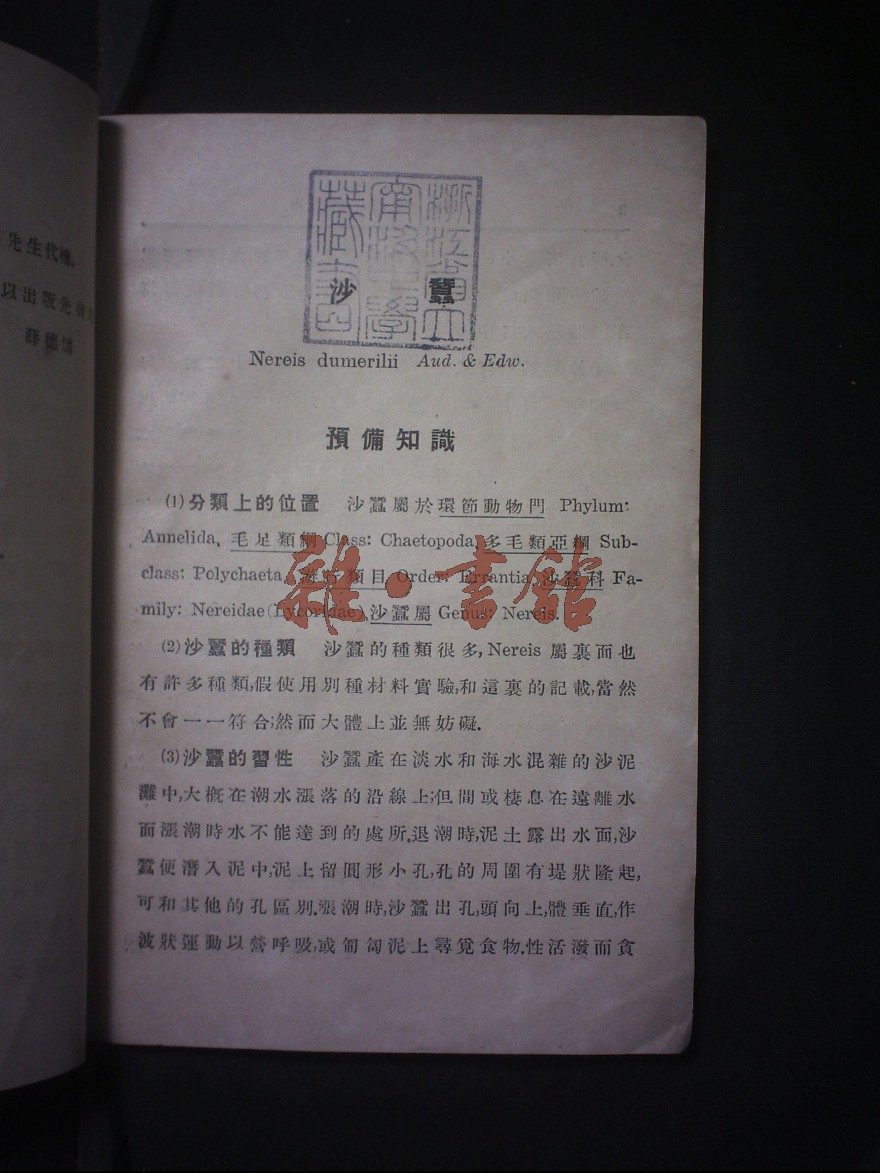 先生代檢.
以出版先
薛德焴
浙江省立
甯波中學
藏書
沙 蠶
Nereis dumerilii Aud. & Edw.
預備知識
(1)分類上的位置 沙蠶屬於環節動物門 Phylum:
Annelida, 毛足類綱 Class: Chaetopoda, 多毛類亞綱 Sub-
class: Polychaeta, 游行類目 Order: Errantia, 沙蠶科 Fa-
mily: Nereidae (Lycoridae), 沙蠶屬 Genus: Nereis.
(2)沙蠶的種類 沙蠶的種類很多, Nereis 屬裏面也
有許多種類,假使用別種材料實驗,和這裏的記載,當然
不會一一符合;然而大體上並無妨礙.
(3)沙蠶的習性 沙蠶產在淡水和海水混雜的沙泥
灘中,大概在潮水漲落的沿線上;但間或棲息在遠離水
面漲潮時水不能達到的處所.退潮時,泥土露出水面,沙
蠶便潛入泥中,泥上留圓形小孔,孔的周圍有堤狀隆起,
可和其他的孔區別.漲潮時,沙蠶出孔,頭向上,體垂直,作
波狀運動以營呼吸,或匍匐泥上尋覓食物.性活潑而貪
雜·書館